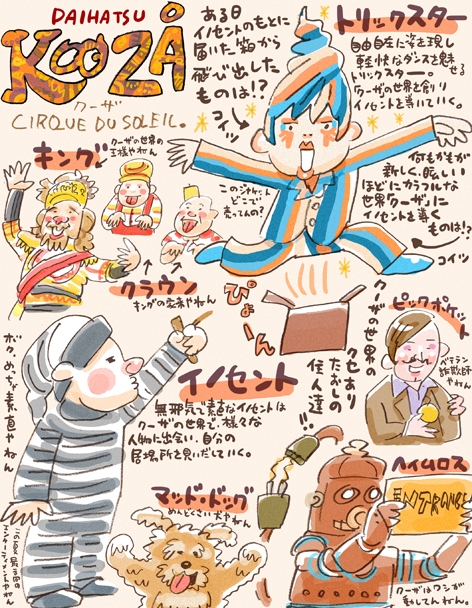 DAIHATSU
KOOZÅ
クーザ
CIRQUE DU SOLEIL.
ある日
イノセントのもとに
届いた箱から
飛び出した
ものは!?
コイツ
トリックスター
自由自在に姿を現し
軽快なダンスを魅せる
トリックスター。
クーザの世界を創り
イノセントを導いていく。
何もかもが
新しく、眩しい
ほどにカラフルな
世界「クーザ」に
イセントを導く
ものは!?
コイツ
キング
クーザの世界の
王様やねん
このジャケット
どこで
売ってんの?
クラウン
キングの家来やねん
ぴょーん
クーザの世界の
クセあり
たおしの
住人達!!
ピックポケット
ベテラン
詐欺師
やねん
ボク、めっちゃ素直やねん
イノセント
無邪気で素直なイノセントは
クーザの世界で、様々な
人物に出会い、自分の
居場所を見いだしていく。
マッド・ドッグ
めんどくさい犬やねん
ヘイムロス
ENTRANCE
クーザはワシが
動かしてんねん。